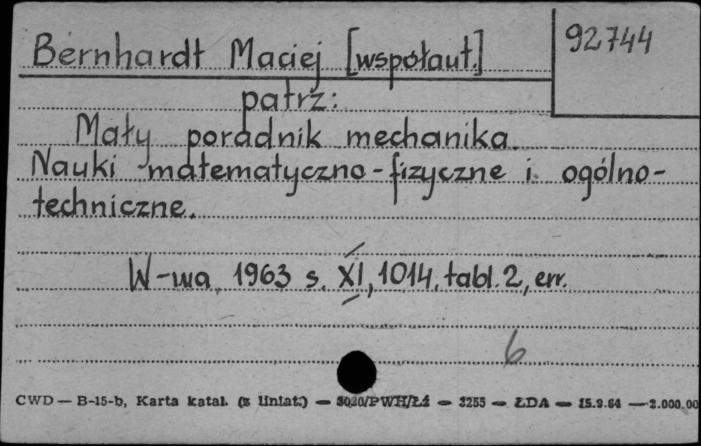 Bernhardt Maciej [współaut.]
92744
patrz:
Mały poradnik mechanika.
Nauki matematyczno-fizyczne i ogólno-
techniczne.
W-wa 1963 s. XI, 1014, tabl. 2, err.
6
CWD — B-15-b, Karta katal. (z liniat.) — 3020/PWH/Łź — 3255 — ŁDA — 15.9.64 — 2.000.00